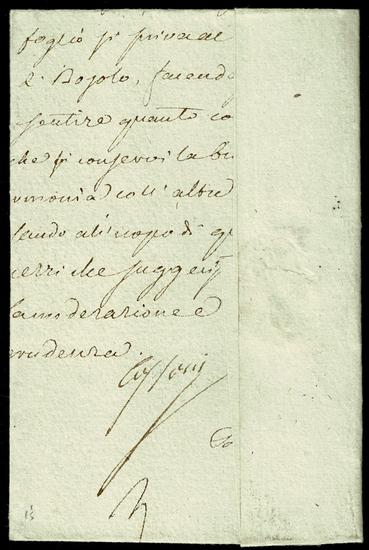 foglio si priva al
e Bozolo, facendo
sentire quanto co
che si conservi la bu
rmonia coll' altre
ando all' uopo di qu
ezzi che sugger
la moderazione e
prudenza.